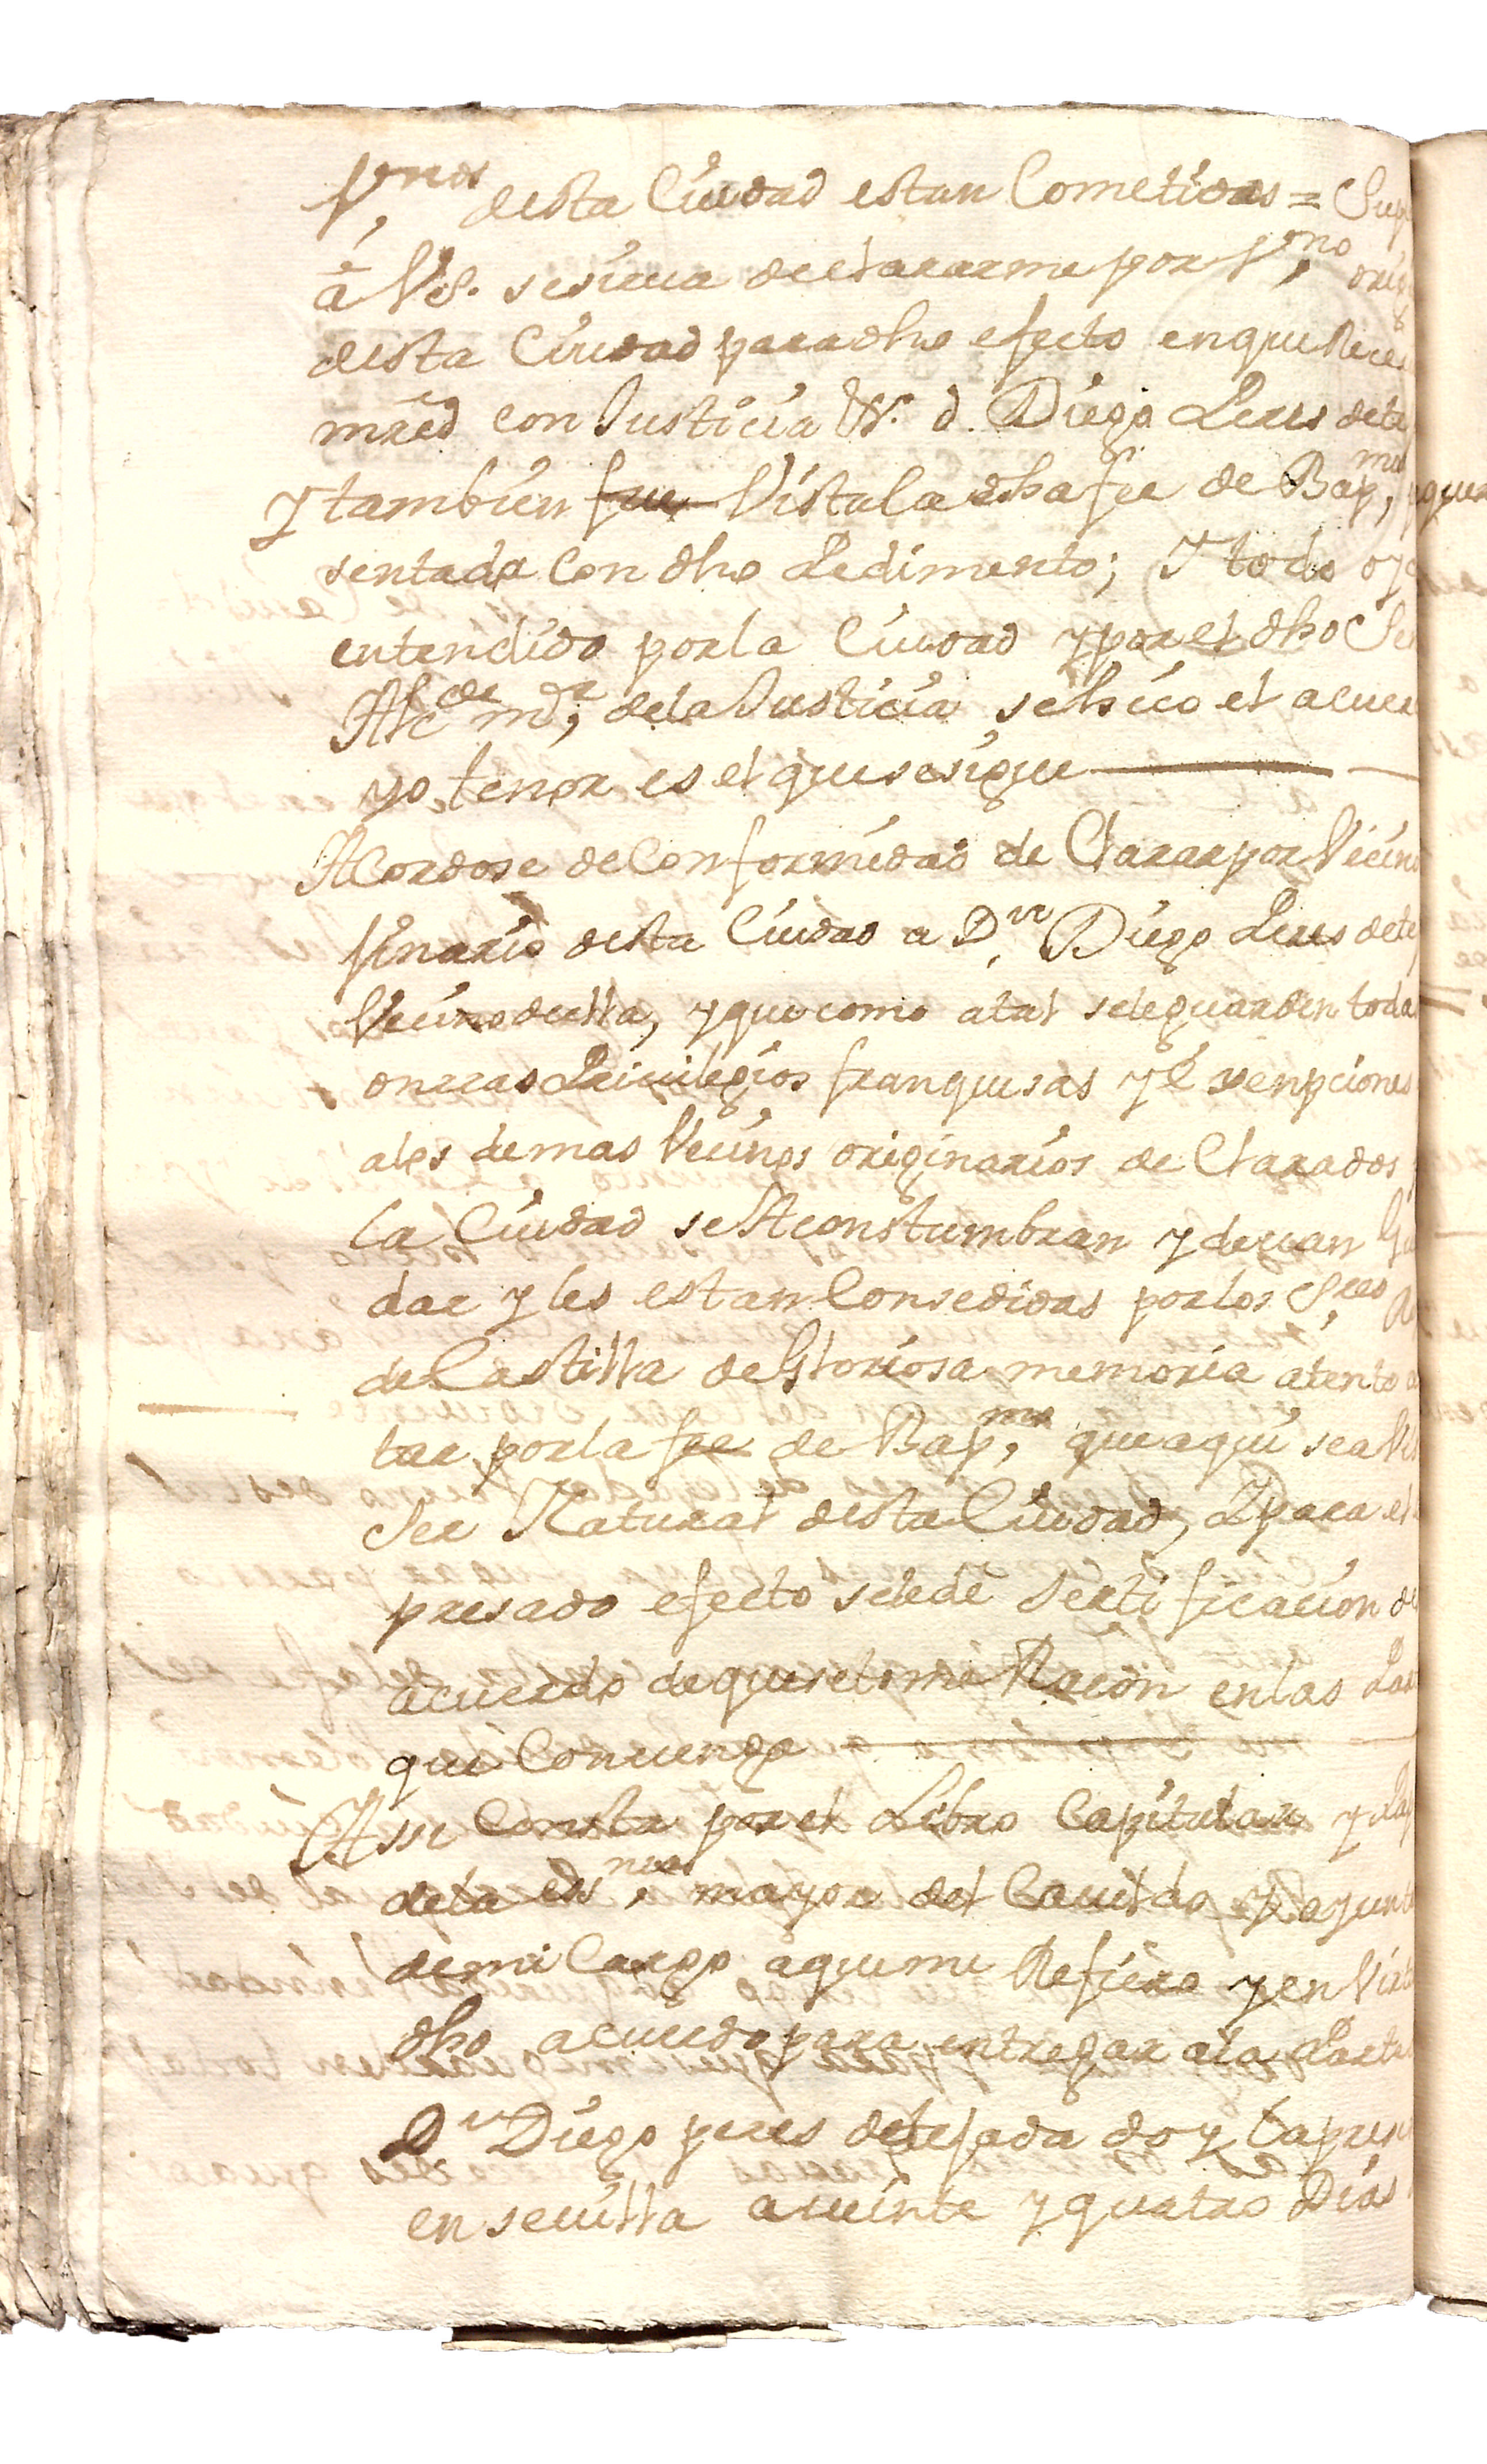 Vnos desta Ciudad estan Cometidas = Sup
â VS. se sirua declararme por Vno orig
desta Ciudad para dho efecto en que Receu
mrēd con Justicia Vt. d. Diego Peres dete
Y tambien fue Vista la dha fee de Bapmo, que
sentada Con dho Pedimento; Y todo oy
entendido por la Ciudad y por el dho Se
Alcde mor, de la Justicia se hiço el acuer
yo tenor es el que se sigue
ACordose de Conformidad de Clarar por Vecino
ginario desta Ciudad a Dn. Diego Peres dete
Vecino della, y que como atal se le guarden toda
onrras Priuilegios franquisas y E senpciones
a los demas Vecinos originarios de Clarados
la Ciudad se Aconstumbran y deuan Gu
dar y les estan Consedidas por los Sres R
de Castilla de Gloriosa memoria atento a
tar por la fee de Bapmo, que aqui sea Vis
Ser Natural desta Ciudad, Y para el
presado efecto se le de Sertificacion de
acuerdo de que se tome Raçon en las Par
que Conuenga
Assi Consta por el Libro Capitular y Pap
de la essnia, mayor del Cauildo y ayunt
de mi Cargo a que me Refiero y en Virt
dho acuerdo para entregar a la Parte
Dn Diego peres de tejada doy la pres
en seuilla a ueinte y quatro Dias